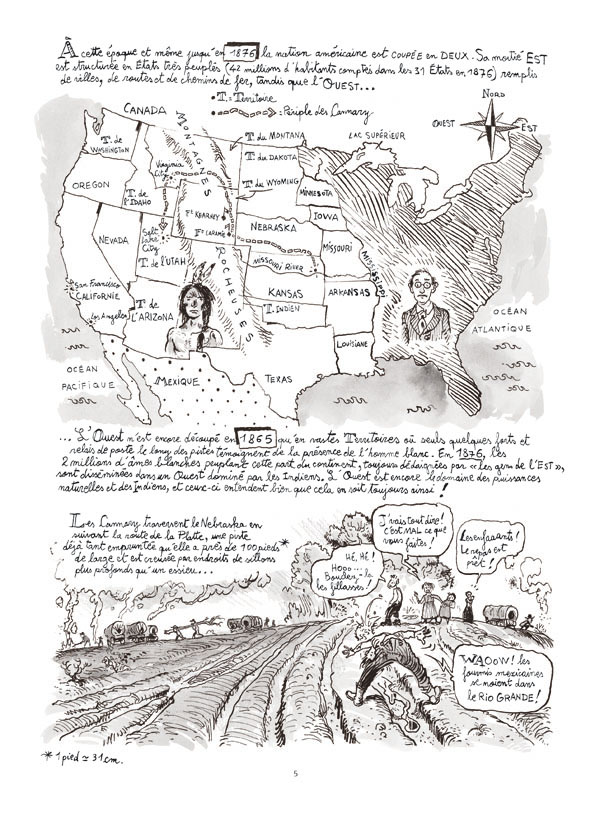 À cette époque et même jusqu'en 1876, la nation américaine est COUPÉE en DEUX. Sa moitié EST
est structurée en États très peuplés (42 millions d'habitants comptés dans les 31 États en 1876) remplis
de villes, de routes et de chemins de fer, tandis que l'OUEST...
• T. = Territoire
= Périple des Cannary
NORD
OUEST
EST
CANADA
MONTAGNES
ROCHEUSES
LAC SUPÉRIEUR
T. de WASHINGTON
Virginia City
T. du MONTANA
T. du DAKOTA
OREGON
T. de l'IDAHO
T. du WYOMING
MINNESOTA
Ft KEARNEY
Ft LARAMIE
IOWA
NEBRASKA
NEVADA
Salt Lake City
T. de l'UTAH
MISSOURI RIVER
MISSOURI
MISSISSIPPI
San Francisco
CALIFORNIE
KANSAS
ARKANSAS
Los Angeles
T. de L'ARIZONA
T. INDIEN
LOUISIANE
OCÉAN ATLANTIQUE
OCÉAN PACIFIQUE
MEXIQUE
TEXAS
... L'OUEST n'est encore découpé en 1865 qu'en vastes Territoires où seuls quelques forts et
relais de poste le long des pistes témoignent de la présence de l'homme blanc. En 1876, les
2 millions d'âmes blanches peuplant cette part du continent, toujours dédaignées par «les gens de l'EST»,
sont disséminées dans un Ouest dominé par les Indiens. L'Ouest est encore le domaine des puissances
naturelles et des Indiens, et ceux-ci entendent bien que cela en soit toujours ainsi !
Les Cannary traversent le Nebraska en
suivant la route de la Platte, une piste
déjà tant empruntée qu'elle a près de 100 pieds*
de large et est creusée par endroits de sillons
plus profonds qu'un essieu...
HÉ, HÉ !
Hooo...
Boudez-là
les fillasses !
J'vais tout dire !
c'est MAL ce que
vous faites !
Les enfaaants !
Le repas est
prêt !
WAOOW ! les
fourmis mexicaines
se noient dans
le RIO GRANDE !
* 1 pied ≃ 31 cm.
5